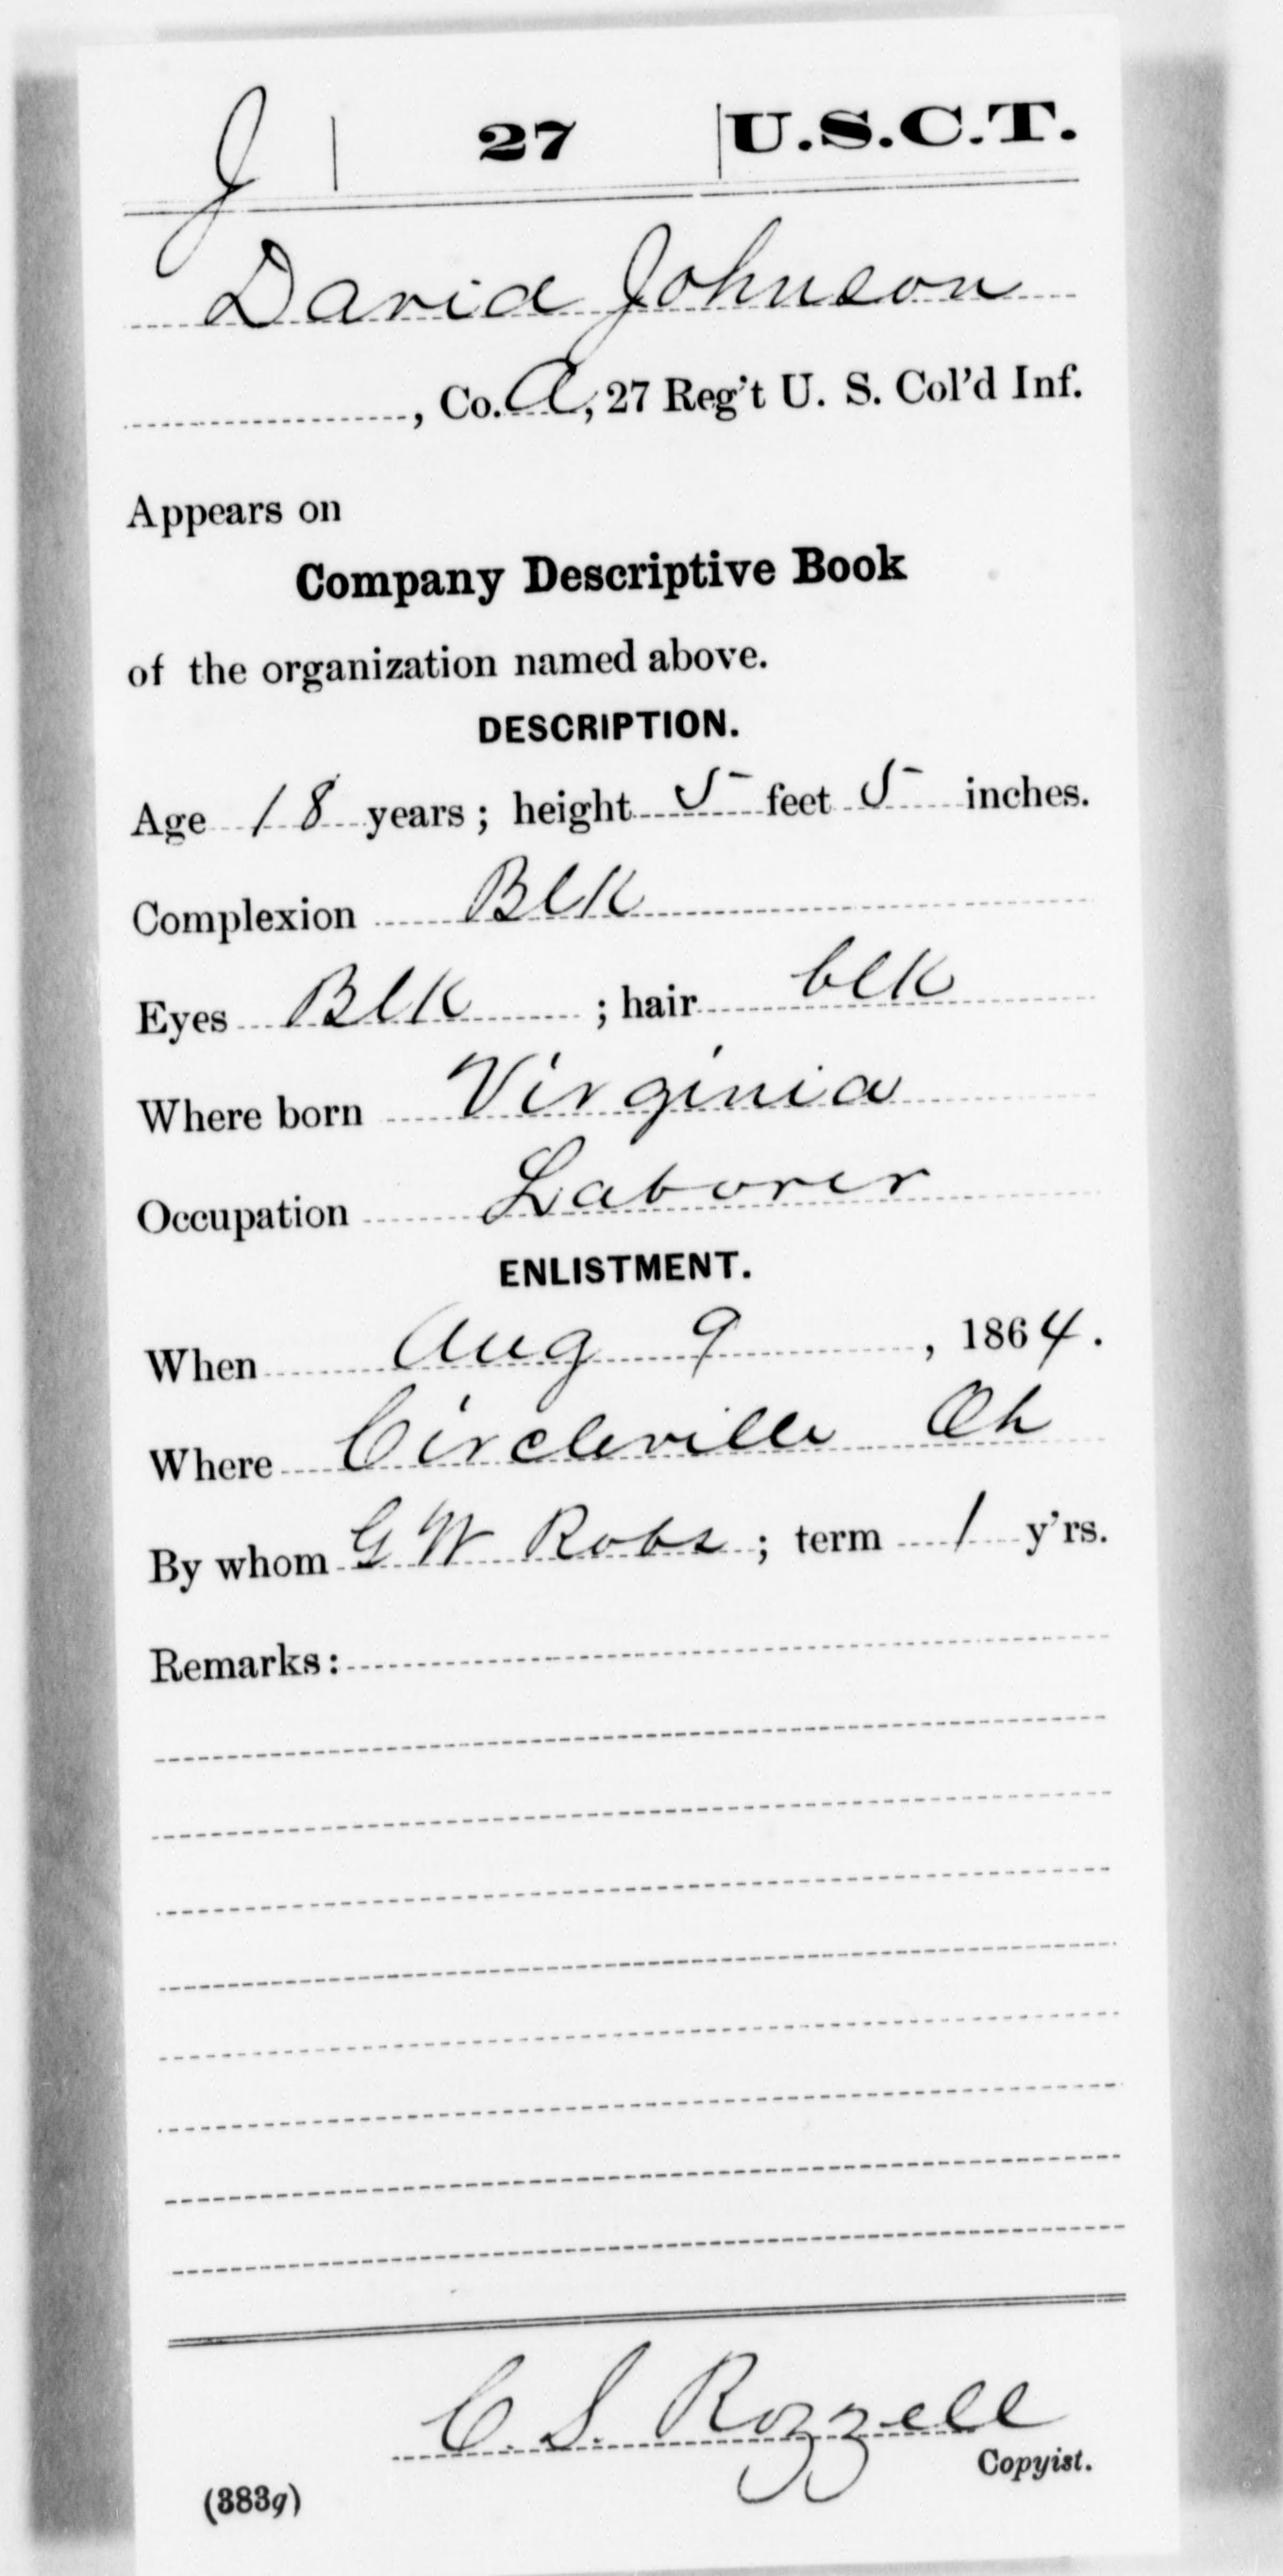 J | 27 | U.S.C.T.
David Johnson
, Co. A, 27 Reg't U. S. Col'd Inf.
Appears on
Company Descriptive Book
of the organization named above.
DESCRIPTION.
Age 18 years; height 5 feet 5 inches.
Complexion Blk
Eyes Blk ; hair blk
Where born Virginia
Occupation Laborer
ENLISTMENT.
When Aug 9, 1864.
Where Circleville Oh
By whom G W Robs ; term 1 y'rs.
Remarks:
C. S. Rozzell
Copyist.
(383g)